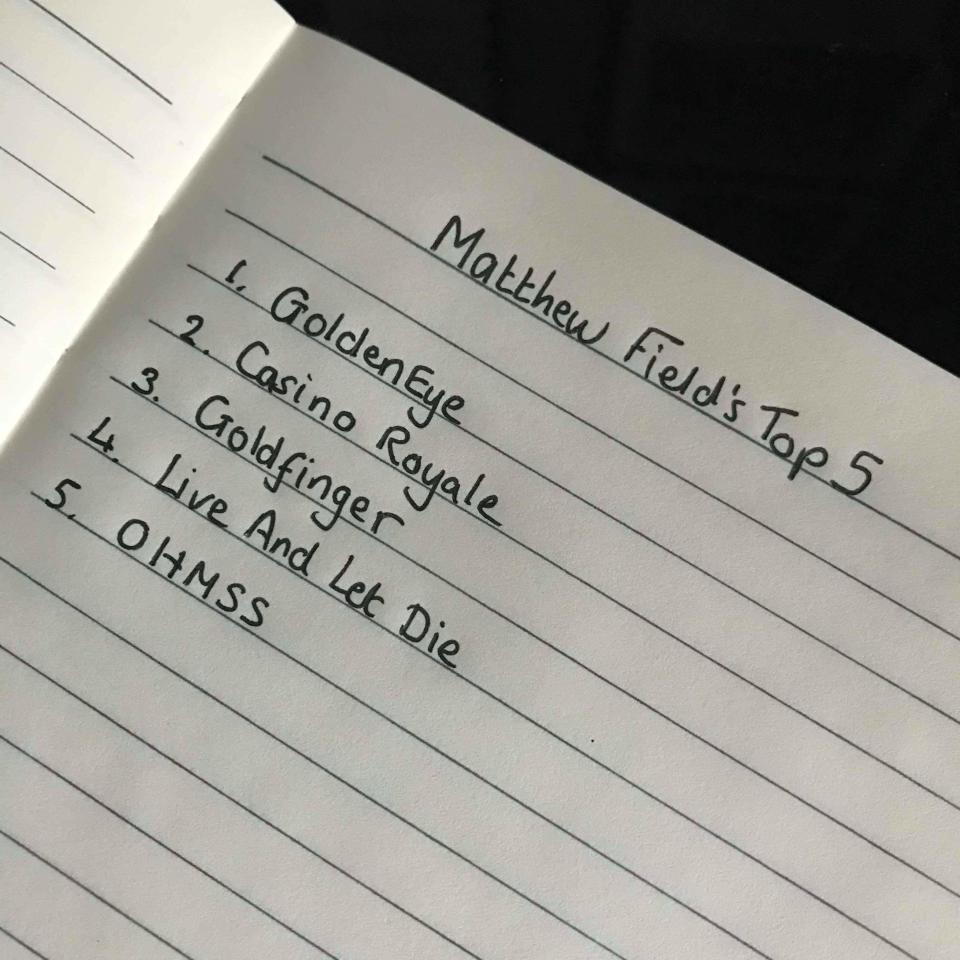 Matthew Field's Top 5
1. GoldenEye
2. Casino Royale
3. Goldfinger
4. Live And Let Die
5. OHMSS